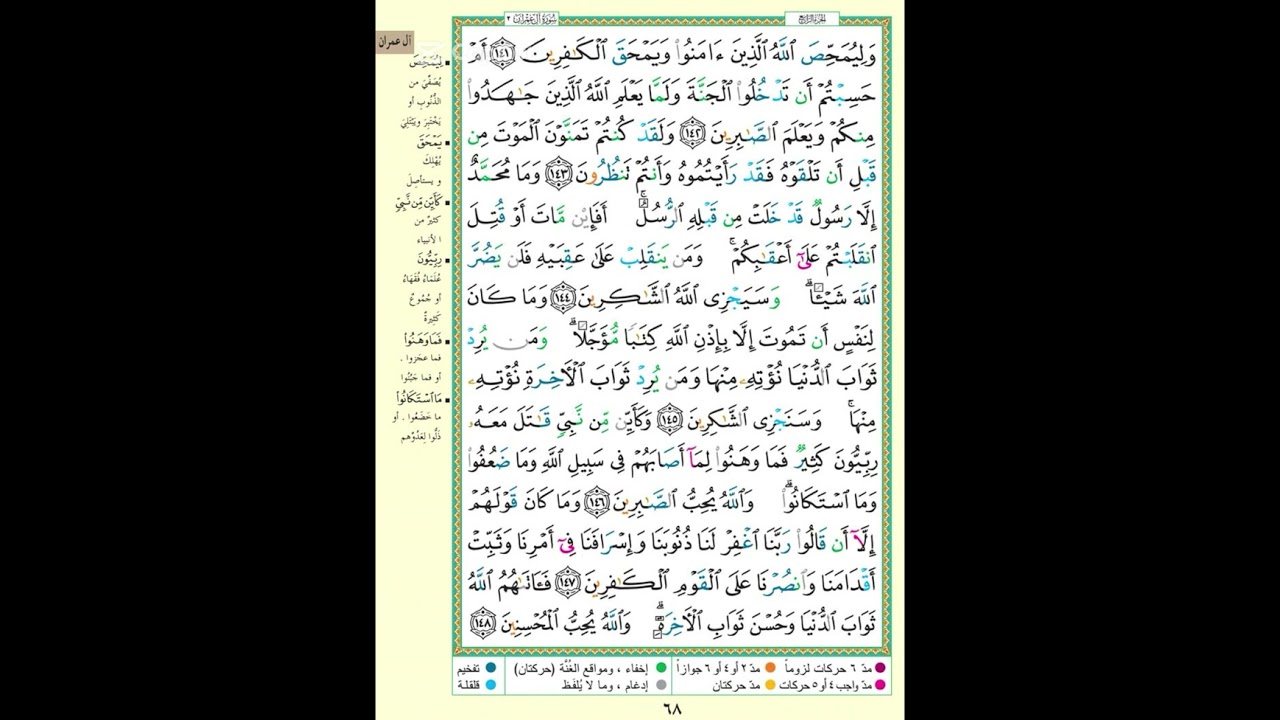 الجزء الرابع
سُورَةُ آلِ عِمْرَانَ ٣
وَلِيُمَحِّصَ ٱللَّهُ ٱلَّذِينَ ءَامَنُوا۟ وَيَمْحَقَ ٱلْكَـٰفِرِينَ ١٤١ أَمْ
حَسِبْتُمْ أَن تَدْخُلُوا۟ ٱلْجَنَّةَ وَلَمَّا يَعْلَمِ ٱللَّهُ ٱلَّذِينَ جَـٰهَدُوا۟
مِنكُمْ وَيَعْلَمَ ٱلصَّـٰبِرِينَ ١٤٢ وَلَقَدْ كُنتُمْ تَمَنَّوْنَ ٱلْمَوْتَ مِن
قَبْلِ أَن تَلْقَوْهُ فَقَدْ رَأَيْتُمُوهُ وَأَنتُمْ تَنظُرُونَ ١٤٣ وَمَا مُحَمَّدٌ
إِلَّا رَسُولٌ قَدْ خَلَتْ مِن قَبْلِهِ ٱلرُّسُلُ ۚ أَفَإِي۟ن مَّاتَ أَوْ قُتِلَ
ٱنقَلَبْتُمْ عَلَىٰٓ أَعْقَـٰبِكُمْ ۚ وَمَن يَنقَلِبْ عَلَىٰ عَقِبَيْهِ فَلَن يَضُرَّ
ٱللَّهَ شَيْـًٔا ۗ وَسَيَجْزِى ٱللَّهُ ٱلشَّـٰكِرِينَ ١٤٤ وَمَا كَانَ
لِنَفْسٍ أَن تَمُوتَ إِلَّا بِإِذْنِ ٱللَّهِ كِتَـٰبًا مُّؤَجَّلًا ۗ وَمَن يُرِدْ
ثَوَابَ ٱلدُّنْيَا نُؤْتِهِۦ مِنْهَا وَمَن يُرِدْ ثَوَابَ ٱلْـَٔاخِرَةِ نُؤْتِهِۦ
مِنْهَا ۚ وَسَنَجْزِى ٱلشَّـٰكِرِينَ ١٤٥ وَكَأَيِّن مِّن نَّبِىٍّ قَـٰتَلَ مَعَهُۥ
رِبِّيُّونَ كَثِيرٌ فَمَا وَهَنُوا۟ لِمَآ أَصَابَهُمْ فِى سَبِيلِ ٱللَّهِ وَمَا ضَعُفُوا۟
وَمَا ٱسْتَكَانُوا۟ ۗ وَٱللَّهُ يُحِبُّ ٱلصَّـٰبِرِينَ ١٤٦ وَمَا كَانَ قَوْلَهُمْ
إِلَّآ أَن قَالُوا۟ رَبَّنَا ٱغْفِرْ لَنَا ذُنُوبَنَا وَإِسْرَافَنَا فِىٓ أَمْرِنَا وَثَبِّتْ
أَقْدَامَنَا وَٱنصُرْنَا عَلَى ٱلْقَوْمِ ٱلْكَـٰفِرِينَ ١٤٧ فَـَٔاتَىٰهُمُ ٱللَّهُ
ثَوَابَ ٱلدُّنْيَا وَحُسْنَ ثَوَابِ ٱلْـَٔاخِرَةِ ۗ وَٱللَّهُ يُحِبُّ ٱلْمُحْسِنِينَ ١٤٨
آل عمران
لِيُمَحِّصَ
يُصَفِّيَ من
الذُّنُوبِ أو
يَخْتَبِرَ ويَبْتَلِيَ
يَمْحَقَ
يُهْلِكَ
و يستأصِلَ
كَأَيِّن مِّن نَّبِيٍّ
كثيرٌ من
الأنبياء
رِبِّيُّونَ
عُلَمَاءُ فُقَهَاءُ
أو جُمُوعٌ
كَثِيرَةٌ
فَمَا وَهَنُوا۟
فما عجَزوا .
أو فما جَبُنُوا
مَا ٱسْتَكَانُوا۟
ما خَضَعُوا . أو
ذَلُّوا لِعَدُوِّهم
مدّ ٦ حركات لزوماً
مدّ ٢ أو ٤ أو ٦ جوازاً
إخفاء ، ومواقع الغُنَّة (حركتان)
تفخيم
مدّ واجب ٤ أو ٥ حركات
مدّ حركتان
إدغام ، وما لا يُلفَظ
قلقلة
٦٨